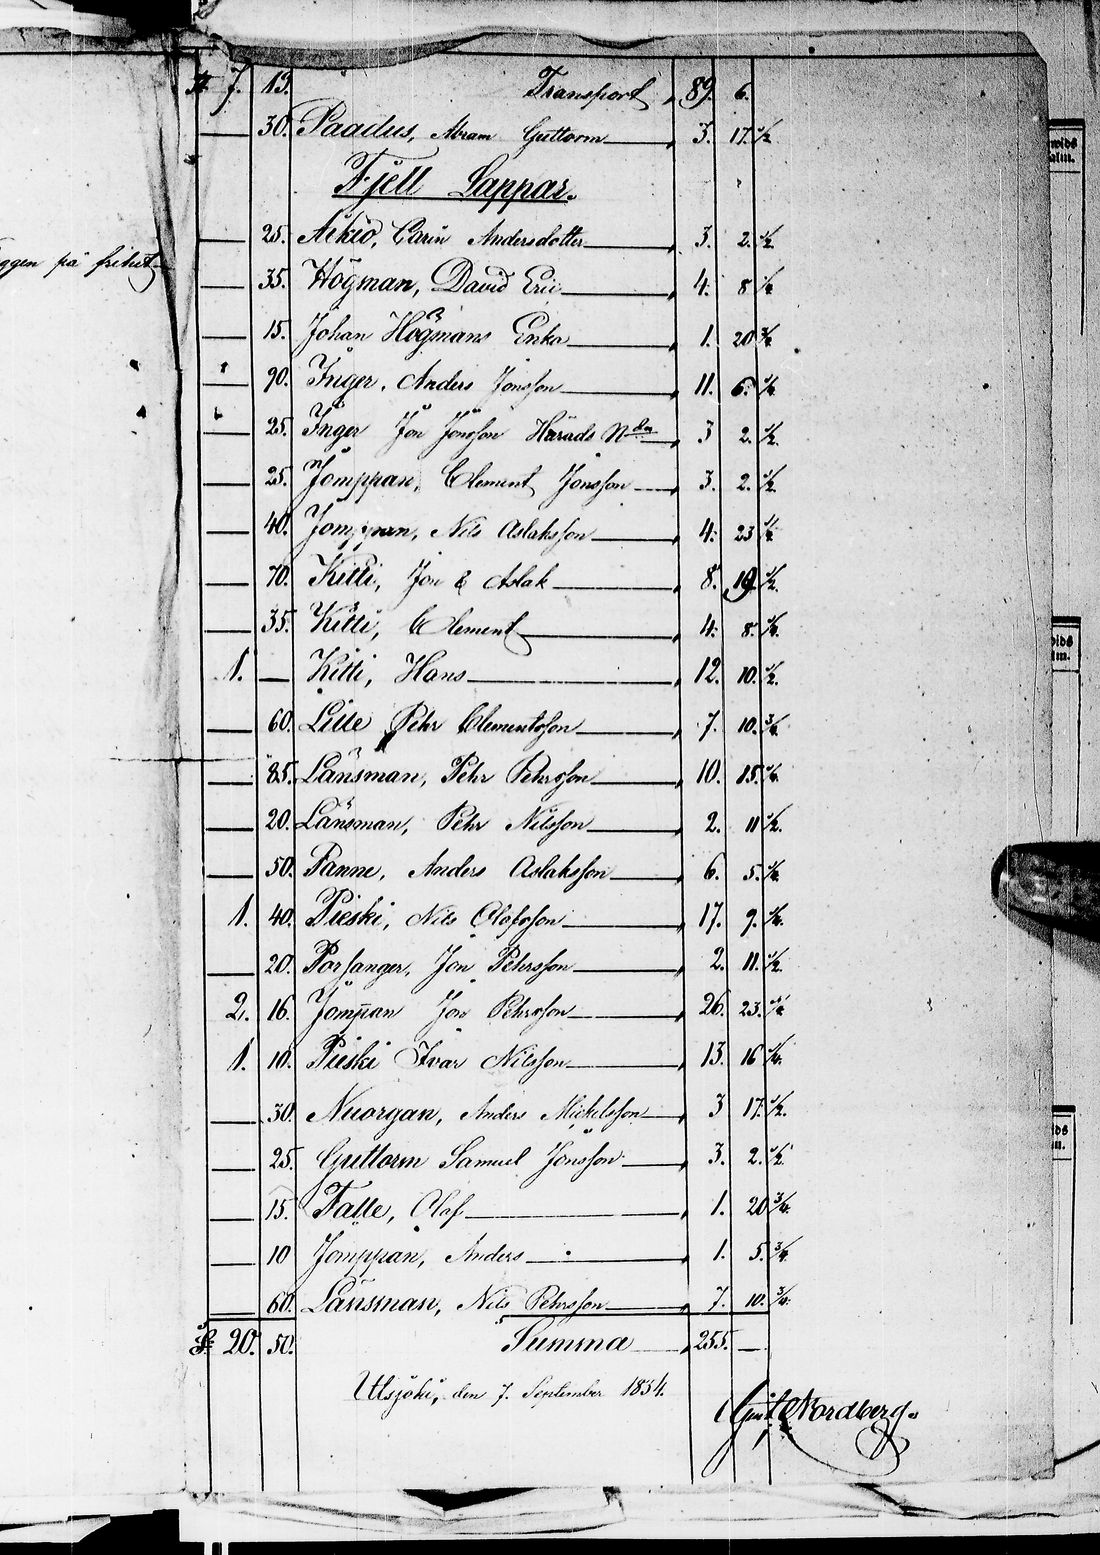 7. 13. Transport 89. 6.
30. Paadus, Abram Guttorm 3. 17. 1/2
Fjell Lappar.
ggen på frihet
25. Aikio, Carin Andersdotter 3. 2. 1/2
35. Högman, David Eric 4. 8 1/4
15. Johan Högmans Enka 1. 20 3/4
90. Inger, Anders Jonsson 11. 6. 1/4
25. Inger Jon Jonsson Härads Nden 3 2. 1/2.
25. Jomppan, Clement Jonsson 3. 2. 1/2
40. Jomppan, Nils Aslaksson 4. 23 1/2
70. Kitti, Jon & Aslak 8. 19 1/2.
35. Kitti, Clement 4. 8. 1/4.
1. — Kitti, Hans 12. 10. 1/2.
60. Lille Pehr Clementsson 7. 10. 3/4.
85. Länsman, Pehr Pehrsson 10. 15. 1/4.
20. Länsman, Pehr Nilsson 2. 11 1/2.
50. Panne, Anders Aslaksson 6. 5. 1/4.
1. 40. Pieski, Nils Olofsson 17. 9. 1/4.
20. Porsanger, Jon Pehrsson 2. 11. 1/2
2. 16. Jomppan Jon Pehrsson 26. 23. 1/4
1. 10. Pieski Ivar Nilsson 13. 16 1/4.
30. Nuorgan, Anders Mickelsson 3 17. 1/2.
25. Guttorm Samuel Jonsson 3. 2. 1/2
15. Falle, Olof 1. 20 3/4.
10 Jomppan, Anders 1. 5. 3/4.
60. Länsman, Nils Pehrsson 7. 10. 3/4.
20. 50. Summa 255. —
Utsjoki, den 7. September 1854.
Nordberg.